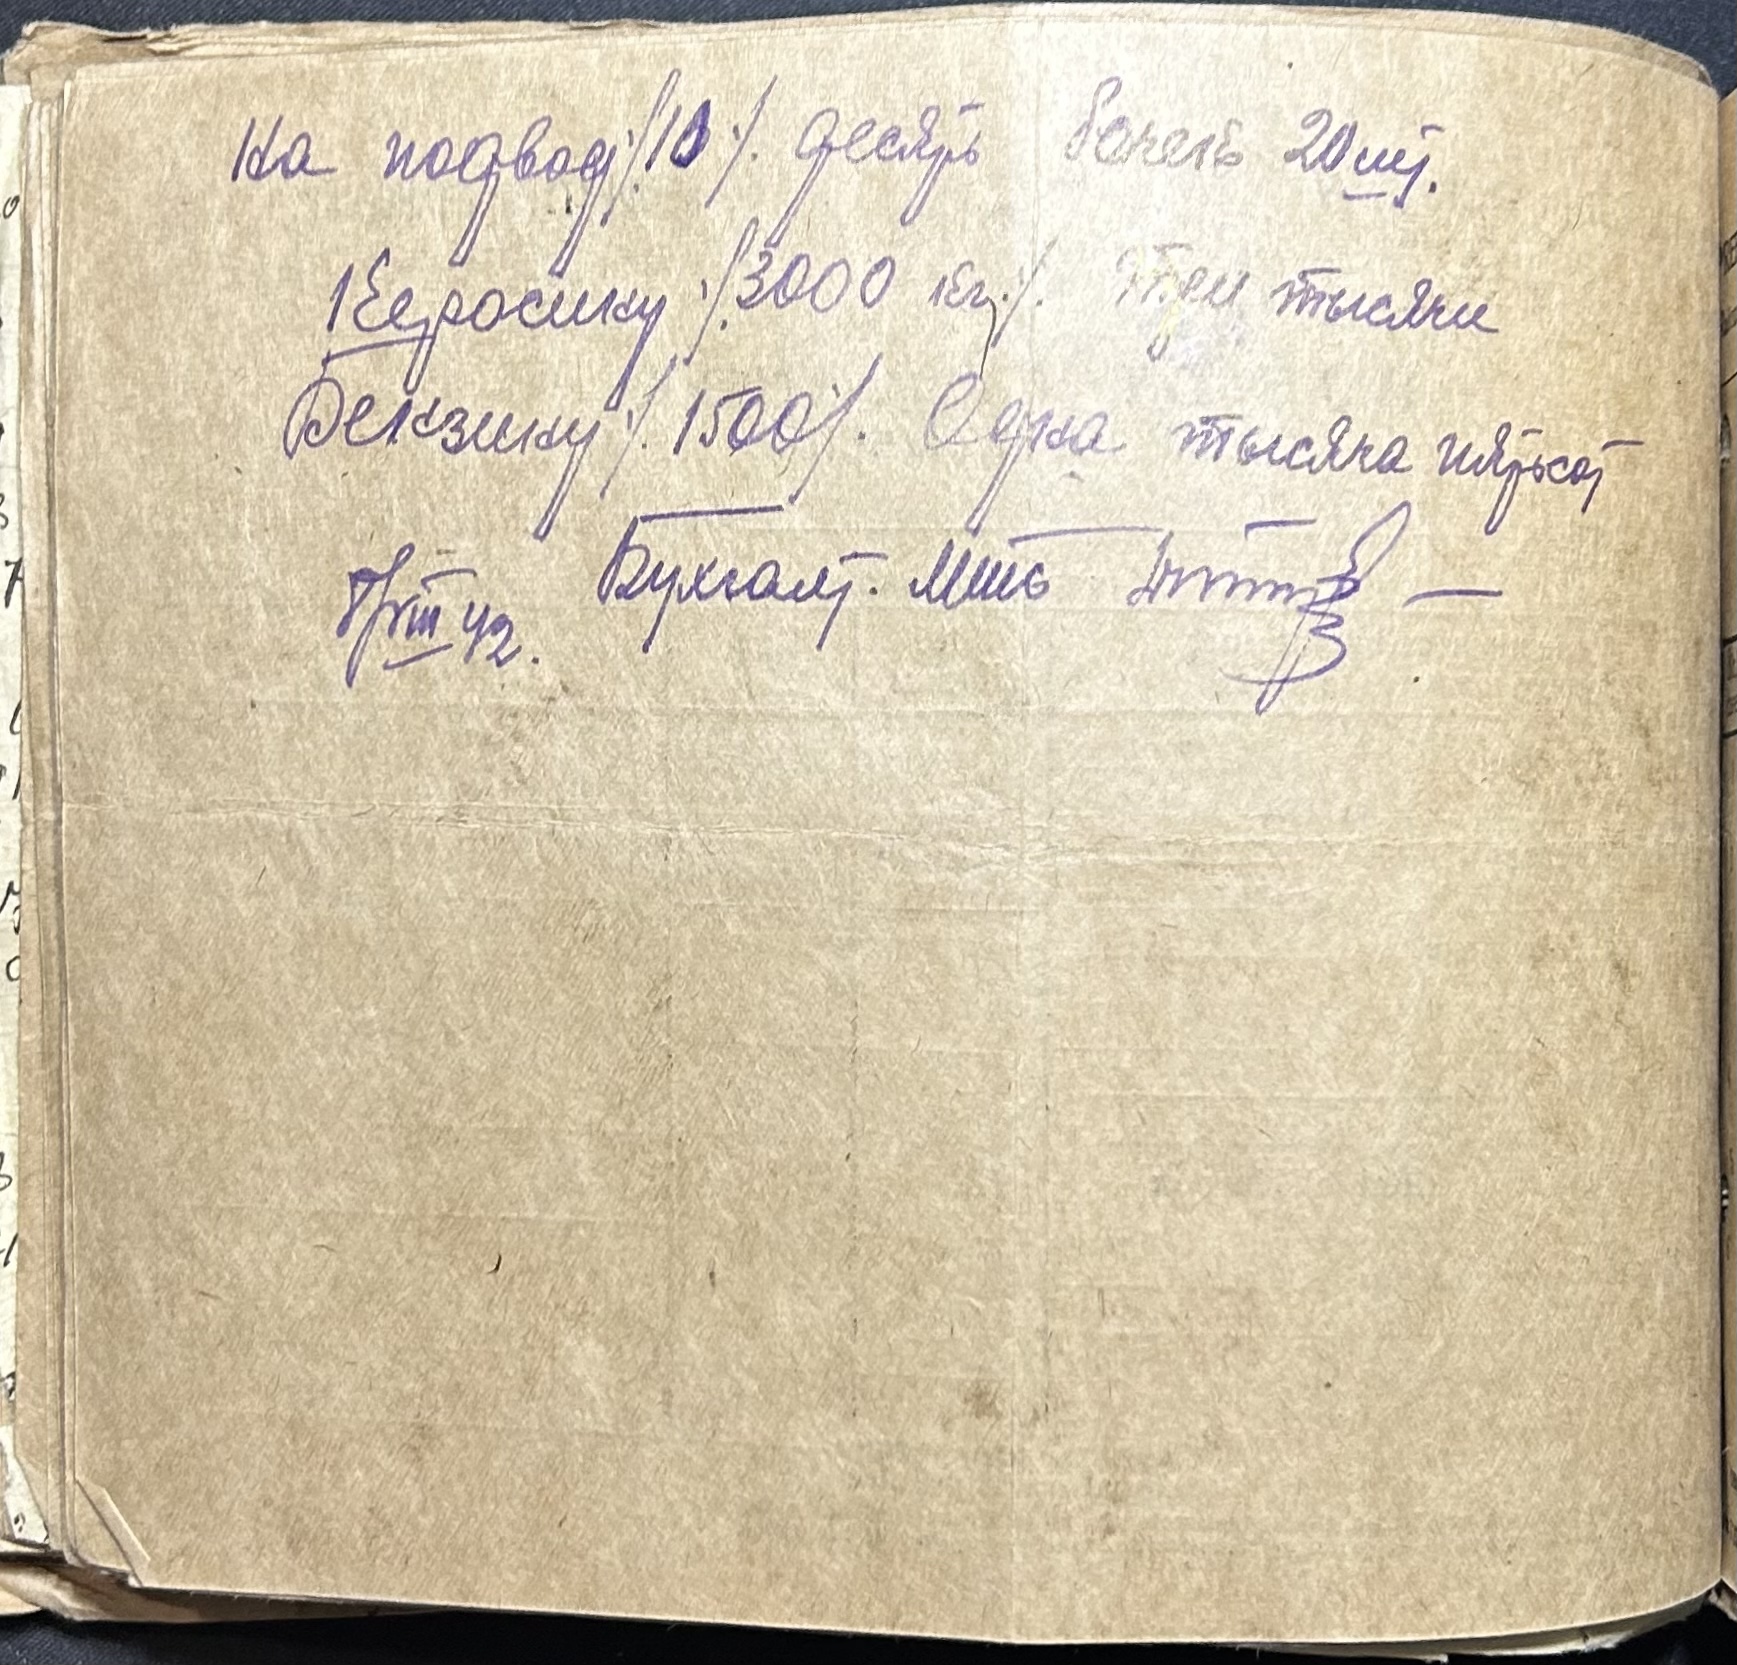 На подвод ./10/. десять бочек 20 шт.
Керосину ./3000 кг./. Три тысячи
Бензину ./.1500/. Одна тысяча пятьсот
VIII 42. Бухгалт.